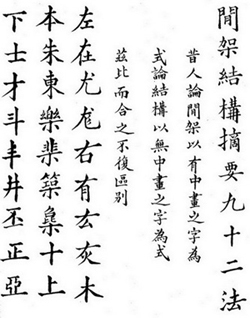 間架結構摘要九十二法
昔人論間架以有中畫之字為
式論結構以無中畫之字為式
茲比而合之不復區別
左在尤尨右有厷灰木
本朱東樂棐築臬十上
下士才斗丰井丕正亞